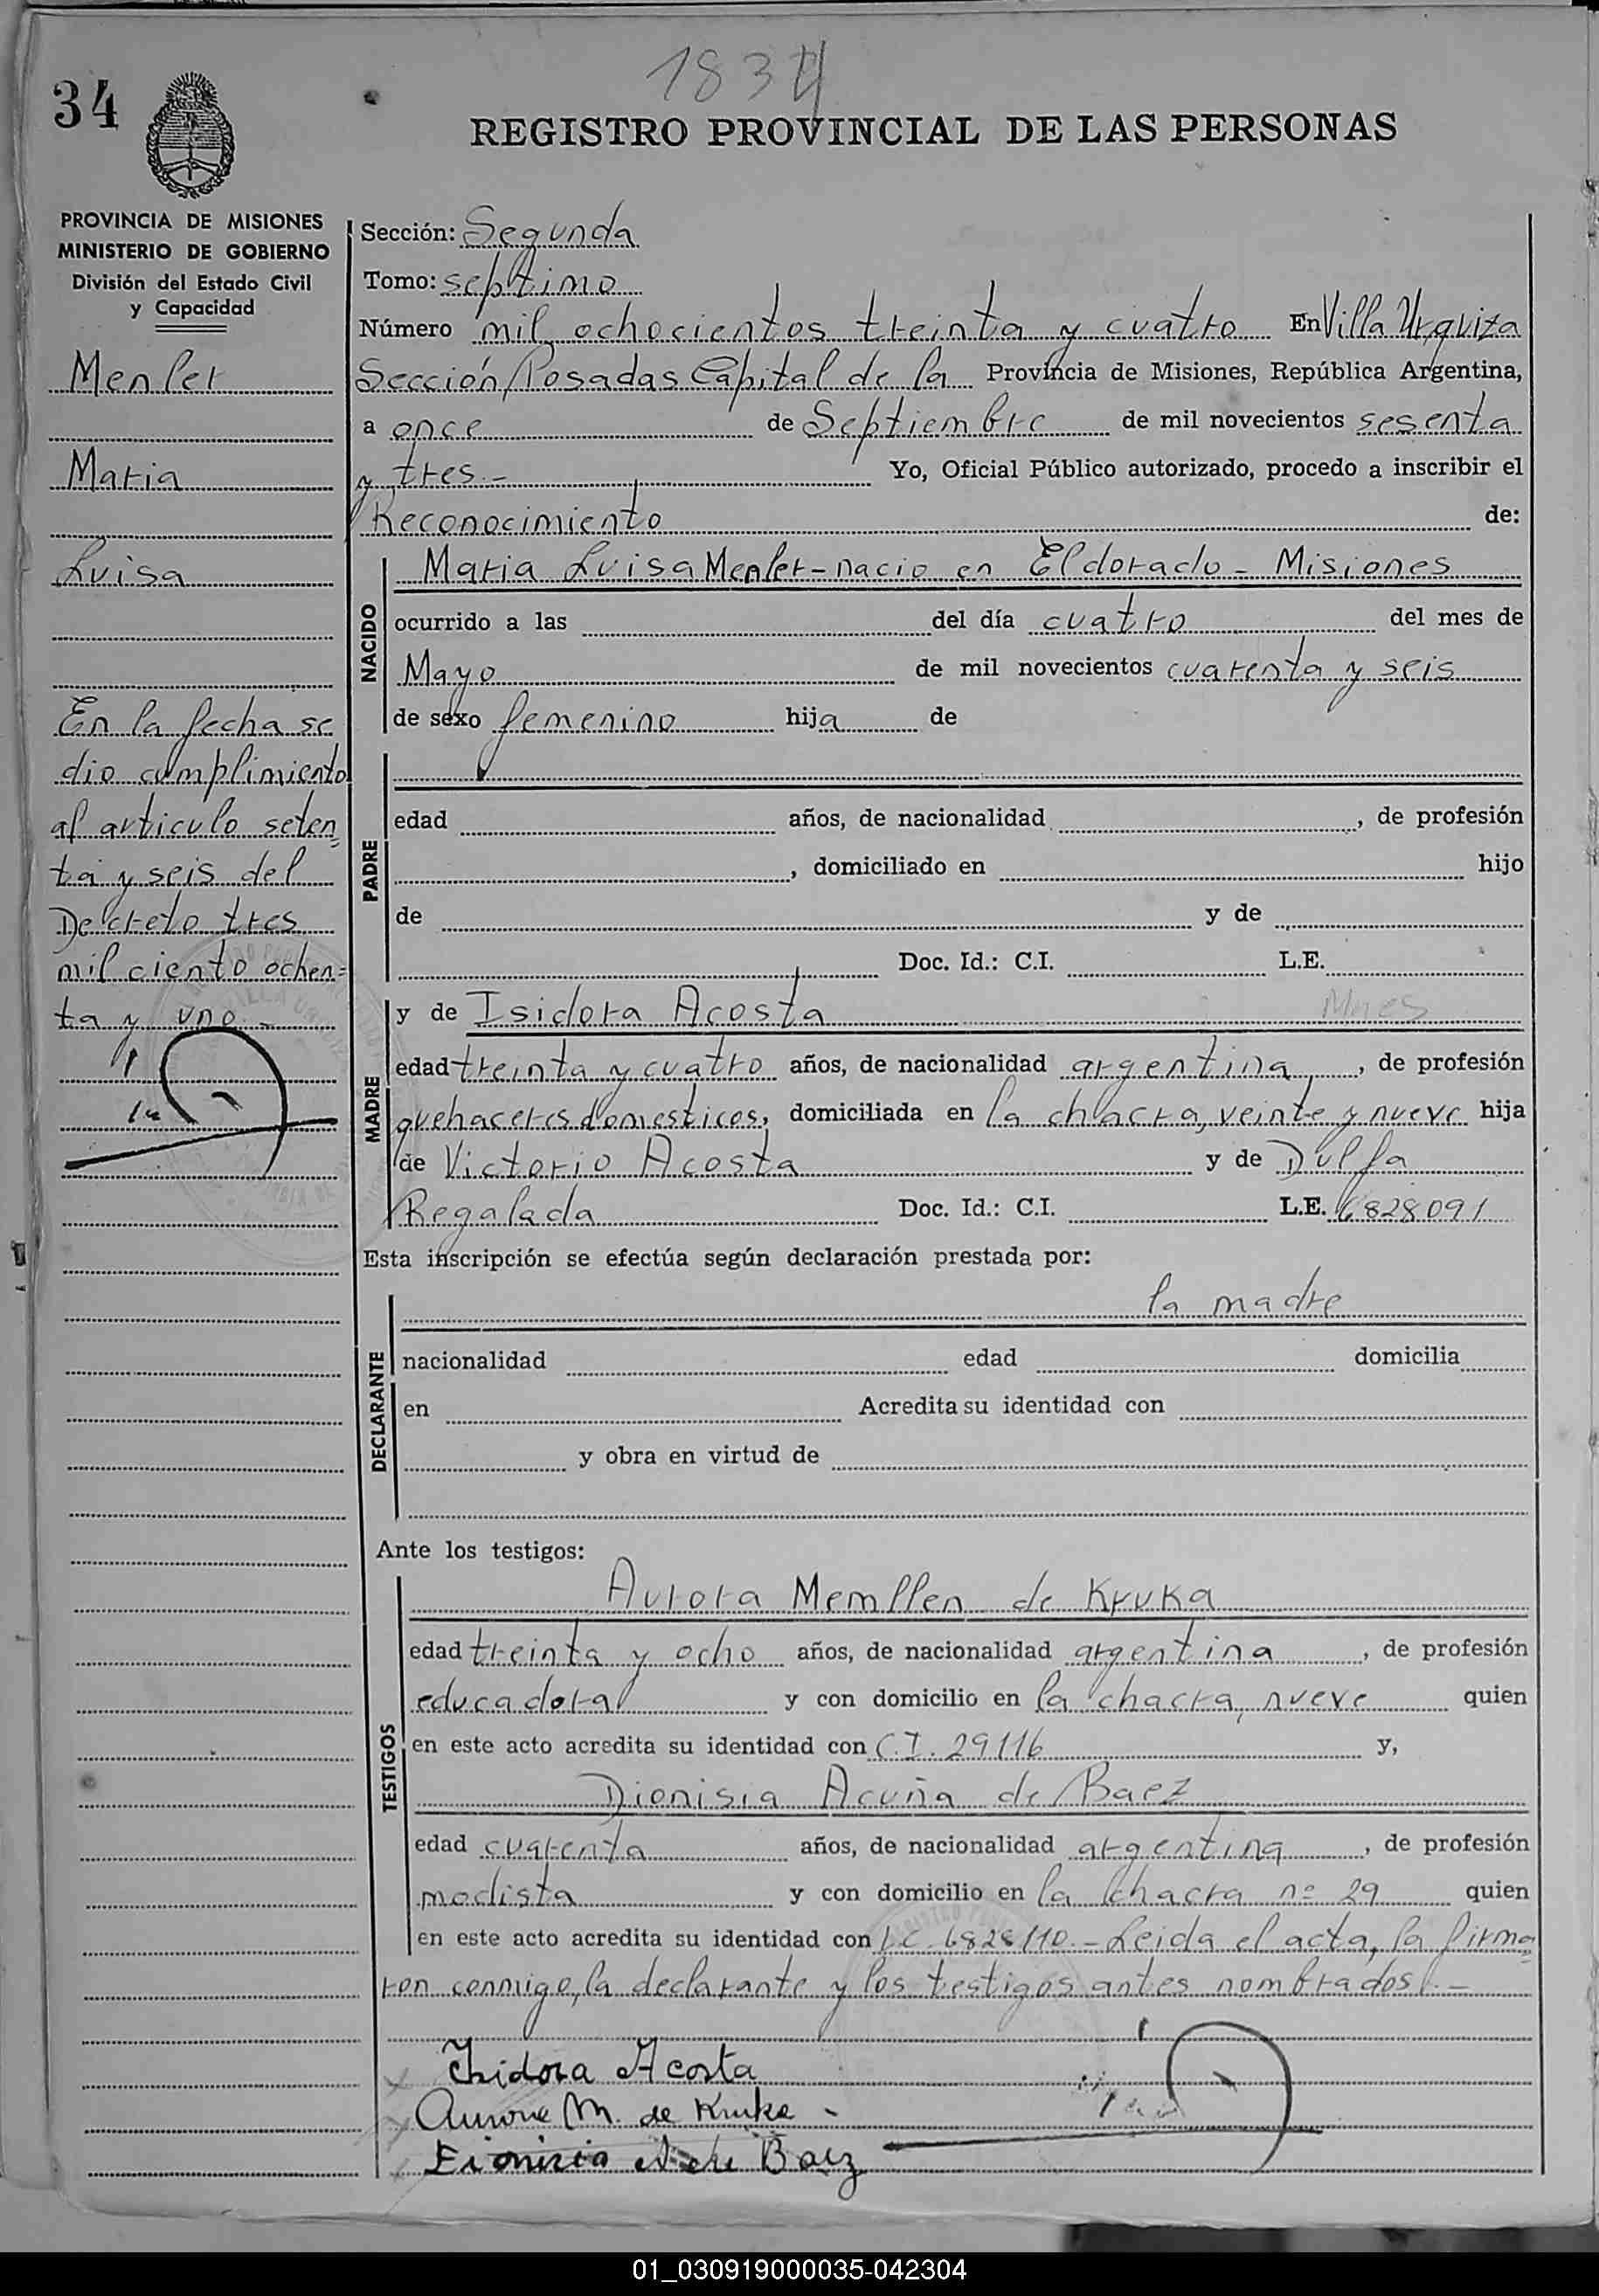 1834
34
REGISTRO PROVINCIAL DE LAS PERSONAS
PROVINCIA DE MISIONES
MINISTERIO DE GOBIERNO
División del Estado Civil
y Capacidad
Menler
Maria
Luisa
En la fecha se
dio cumplimiento
al articulo seten=
ta y seis del
Decreto tres
mil ciento ochen=
ta y uno.-
Sección: Segunda
Tomo: septimo
Número mil ochocientos treinta y cuatro En Villa Urquiza
Sección Posadas Capital de la Provincia de Misiones, República Argentina,
a once de Septiembre de mil novecientos sesenta
y tres.- Yo, Oficial Público autorizado, procedo a inscribir el
Reconocimiento de:
NACIDO
Maria Luisa Menler - nacio en Eldorado - Misiones
ocurrido a las del día cuatro del mes de
Mayo de mil novecientos cuarenta y seis
de sexo femenino hija de
PADRE
edad años, de nacionalidad , de profesión
, domiciliado en hijo
de y de
Doc. Id.: C.I. L.E.
MADRE
y de Isidora Acosta Mnes
edad treinta y cuatro años, de nacionalidad argentina , de profesión
quehaceres domesticos, domiciliada en la chacra, veinte y nueve hija
de Victorio Acosta y de Dulfa
Regalada Doc. Id.: C.I. L.E. 6828091
Esta inscripción se efectúa según declaración prestada por:
DECLARANTE
la madre
nacionalidad edad domicilia
en Acredita su identidad con
y obra en virtud de
Ante los testigos:
TESTIGOS
Aurora Memllen de Kruka
edad treinta y ocho años, de nacionalidad argentina , de profesión
educadora y con domicilio en la chacra, nueve quien
en este acto acredita su identidad con C.I. 29116 y,
Dionisia Acuña de Baez
edad cuarenta años, de nacionalidad argentina , de profesión
modista y con domicilio en la chacra nº 29 quien
en este acto acredita su identidad con L.C. 6828110.- Leida el acta, la firma=
ron conmigo, la declarante y los testigos antes nombrados.-
Isidora Acosta
Aurora M. de Kruka -
Dionisia A de Baez
01_030919000035-042304